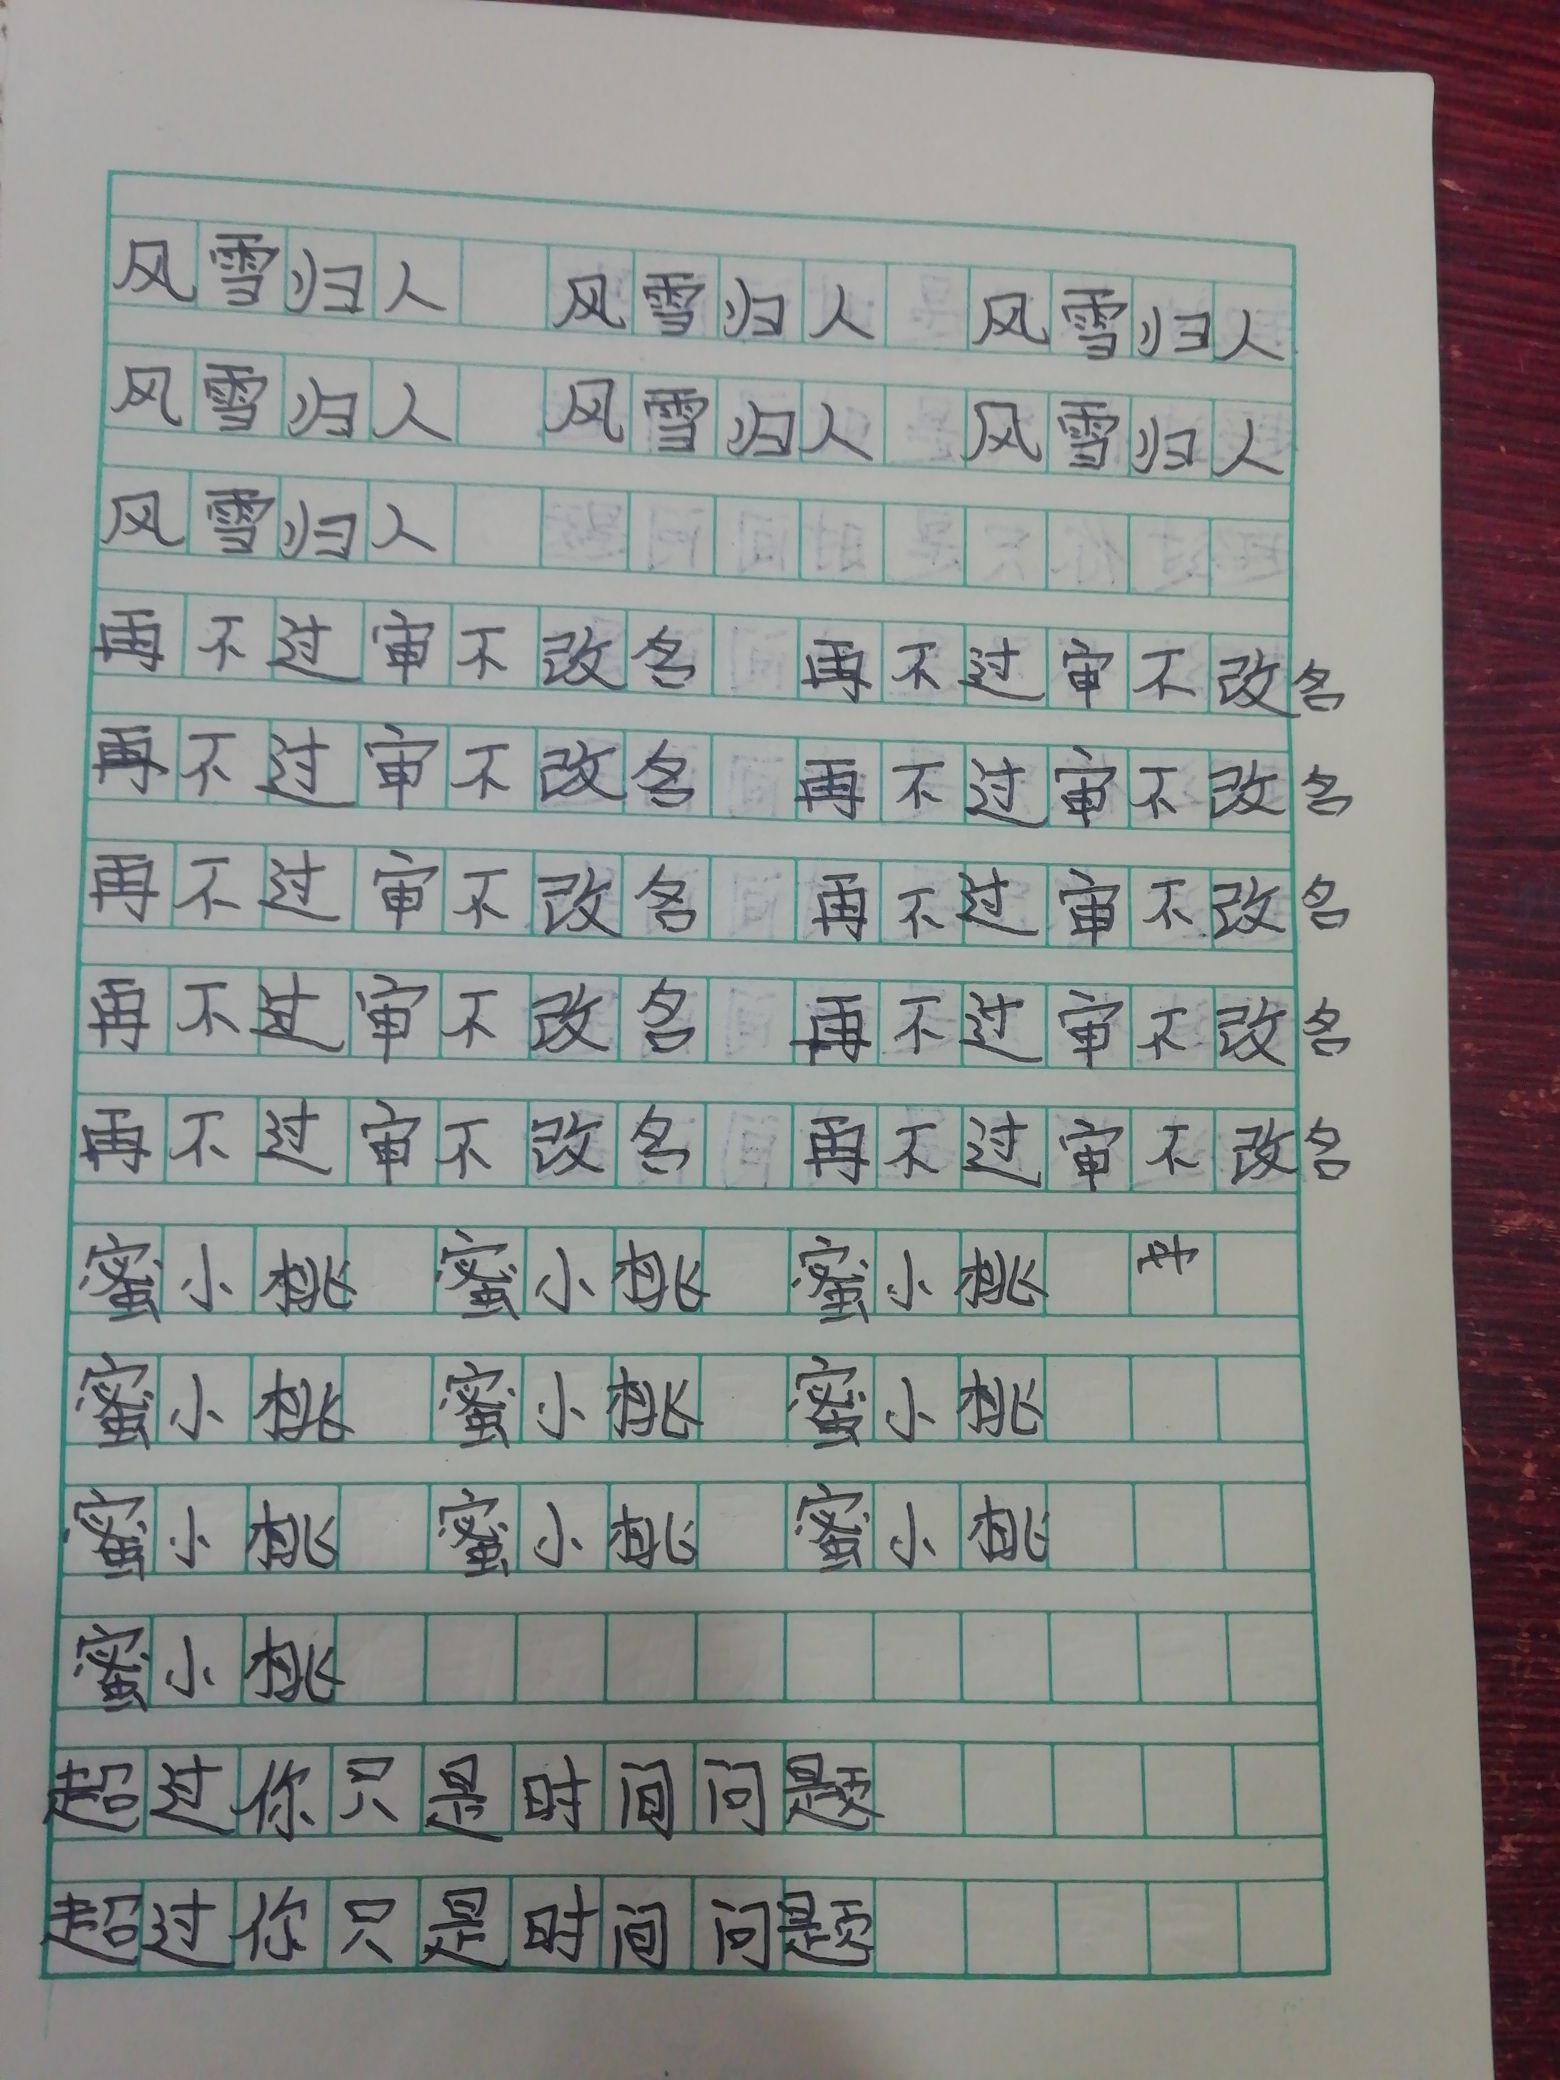 风雪归人 风雪归人 风雪归人
风雪归人 风雪归人 风雪归人
风雪归人
再不过审不改名 再不过审不改名
再不过审不改名 再不过审不改名
再不过审不改名 再不过审不改名
再不过审不改名 再不过审不改名
再不过审不改名 再不过审不改名
蜜小桃 蜜小桃 蜜小桃
蜜小桃 蜜小桃 蜜小桃
蜜小桃 蜜小桃 蜜小桃
蜜小桃
超过你只是时间问题
超过你只是时间问题